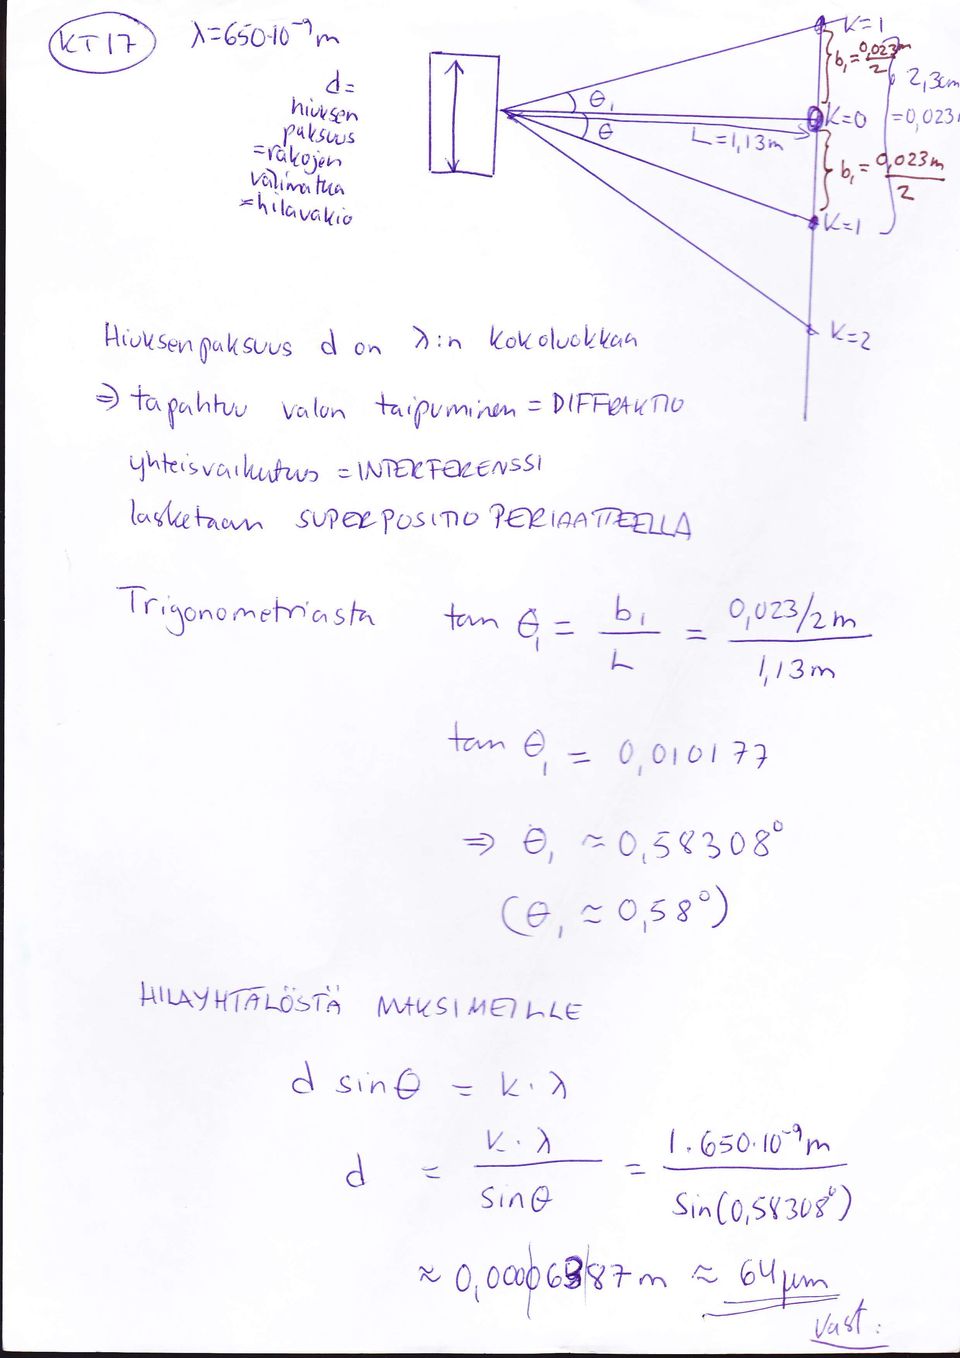 KT17
λ=650·10⁻⁹m
d=
hiuksen
paksuus
=rakojen
välimatka
=hilavakio
θ₁
θ
L=1,13m
K=1
b₁=0,023m/2
K=0
2,3cm
=0,023m
b₁=0,023m/2
K=1
K=2
Hiuksenpaksuus d on λ:n kokoluokkaa
⇒ tapahtuu valon taipuminen = DIFFRAKTIO
yhteisvaikutus = INTERFERENSSI
lasketaan SUPERPOSITIO PERIAATTEELLA
Trigonometriasta tan θ₁ = b₁/L = 0,023/2 m / 1,13m
tan θ₁ = 0,010177
⇒ θ₁ ≈ 0,58308°
(θ₁ ≈ 0,58°)
HILAYHTÄLÖSTÄ MAKSIMEILLE
d sinθ = k·λ
d = k·λ / sinθ = 1·650·10⁻⁹m / sin(0,58308°)
≈ 0,00006387m ≈ 64μm
Vast: